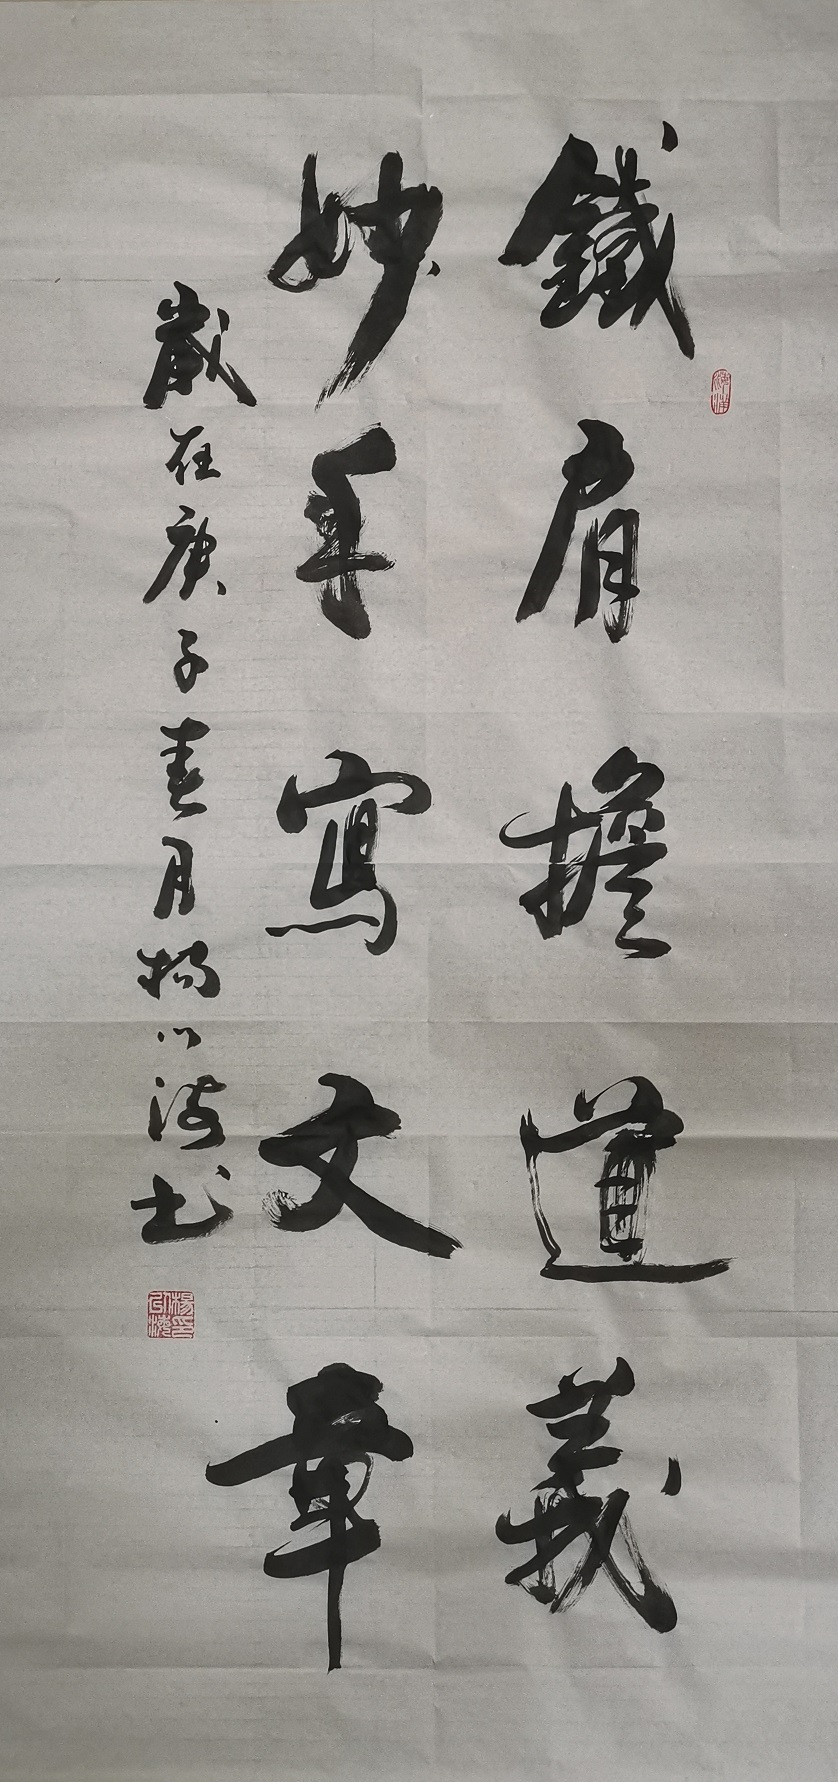 鐵肩擔道義
妙手寫文章
歲在庚子春月楊以海书